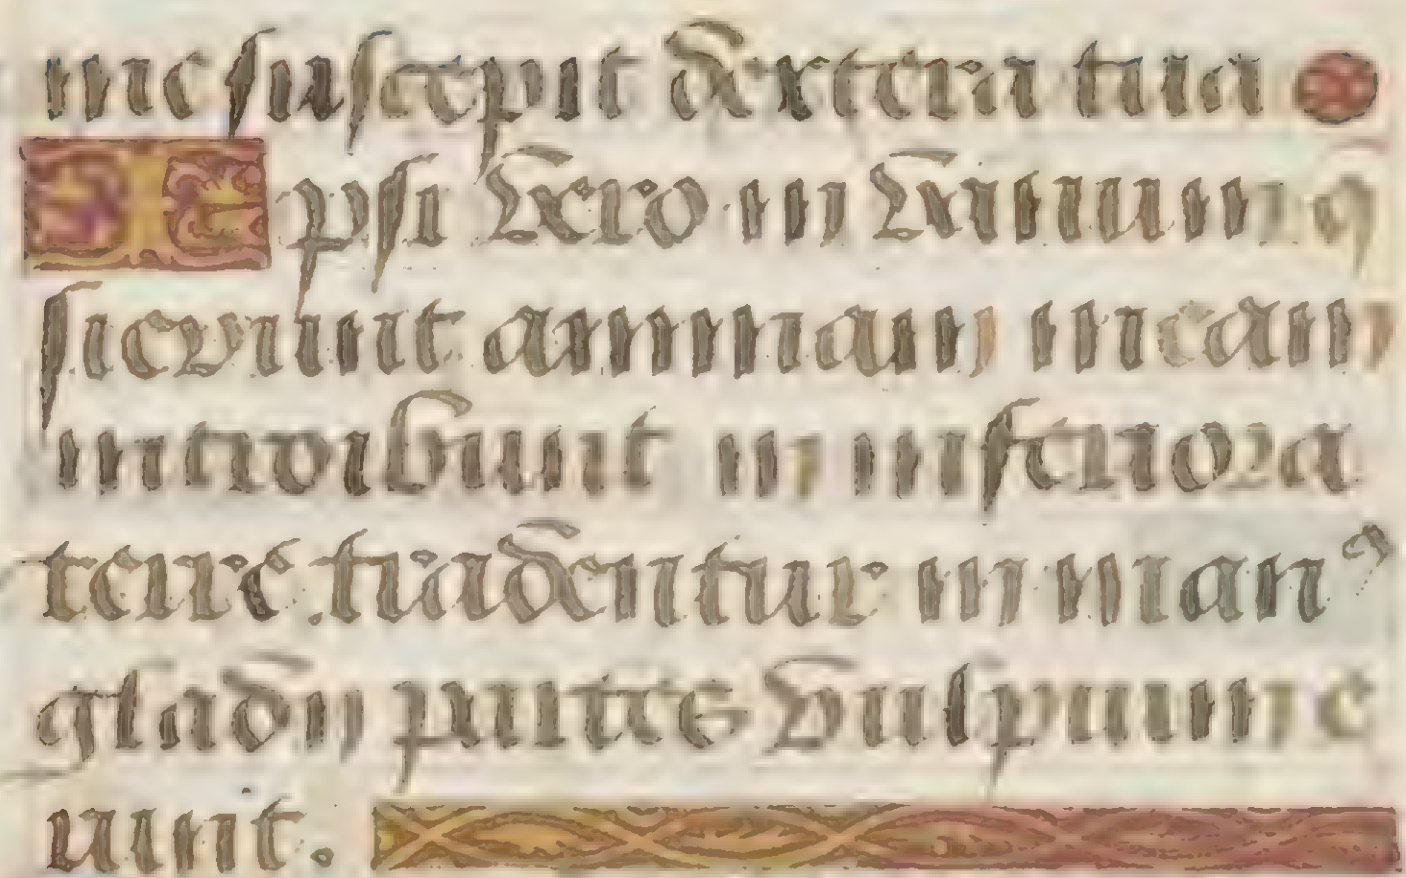 me suscepit dextera tua
Ipsi vero in vanum q
sierunt animam meam
introibunt in inferiora
terre tradentur in manꝰ
gladij partes vulpium e
runt.